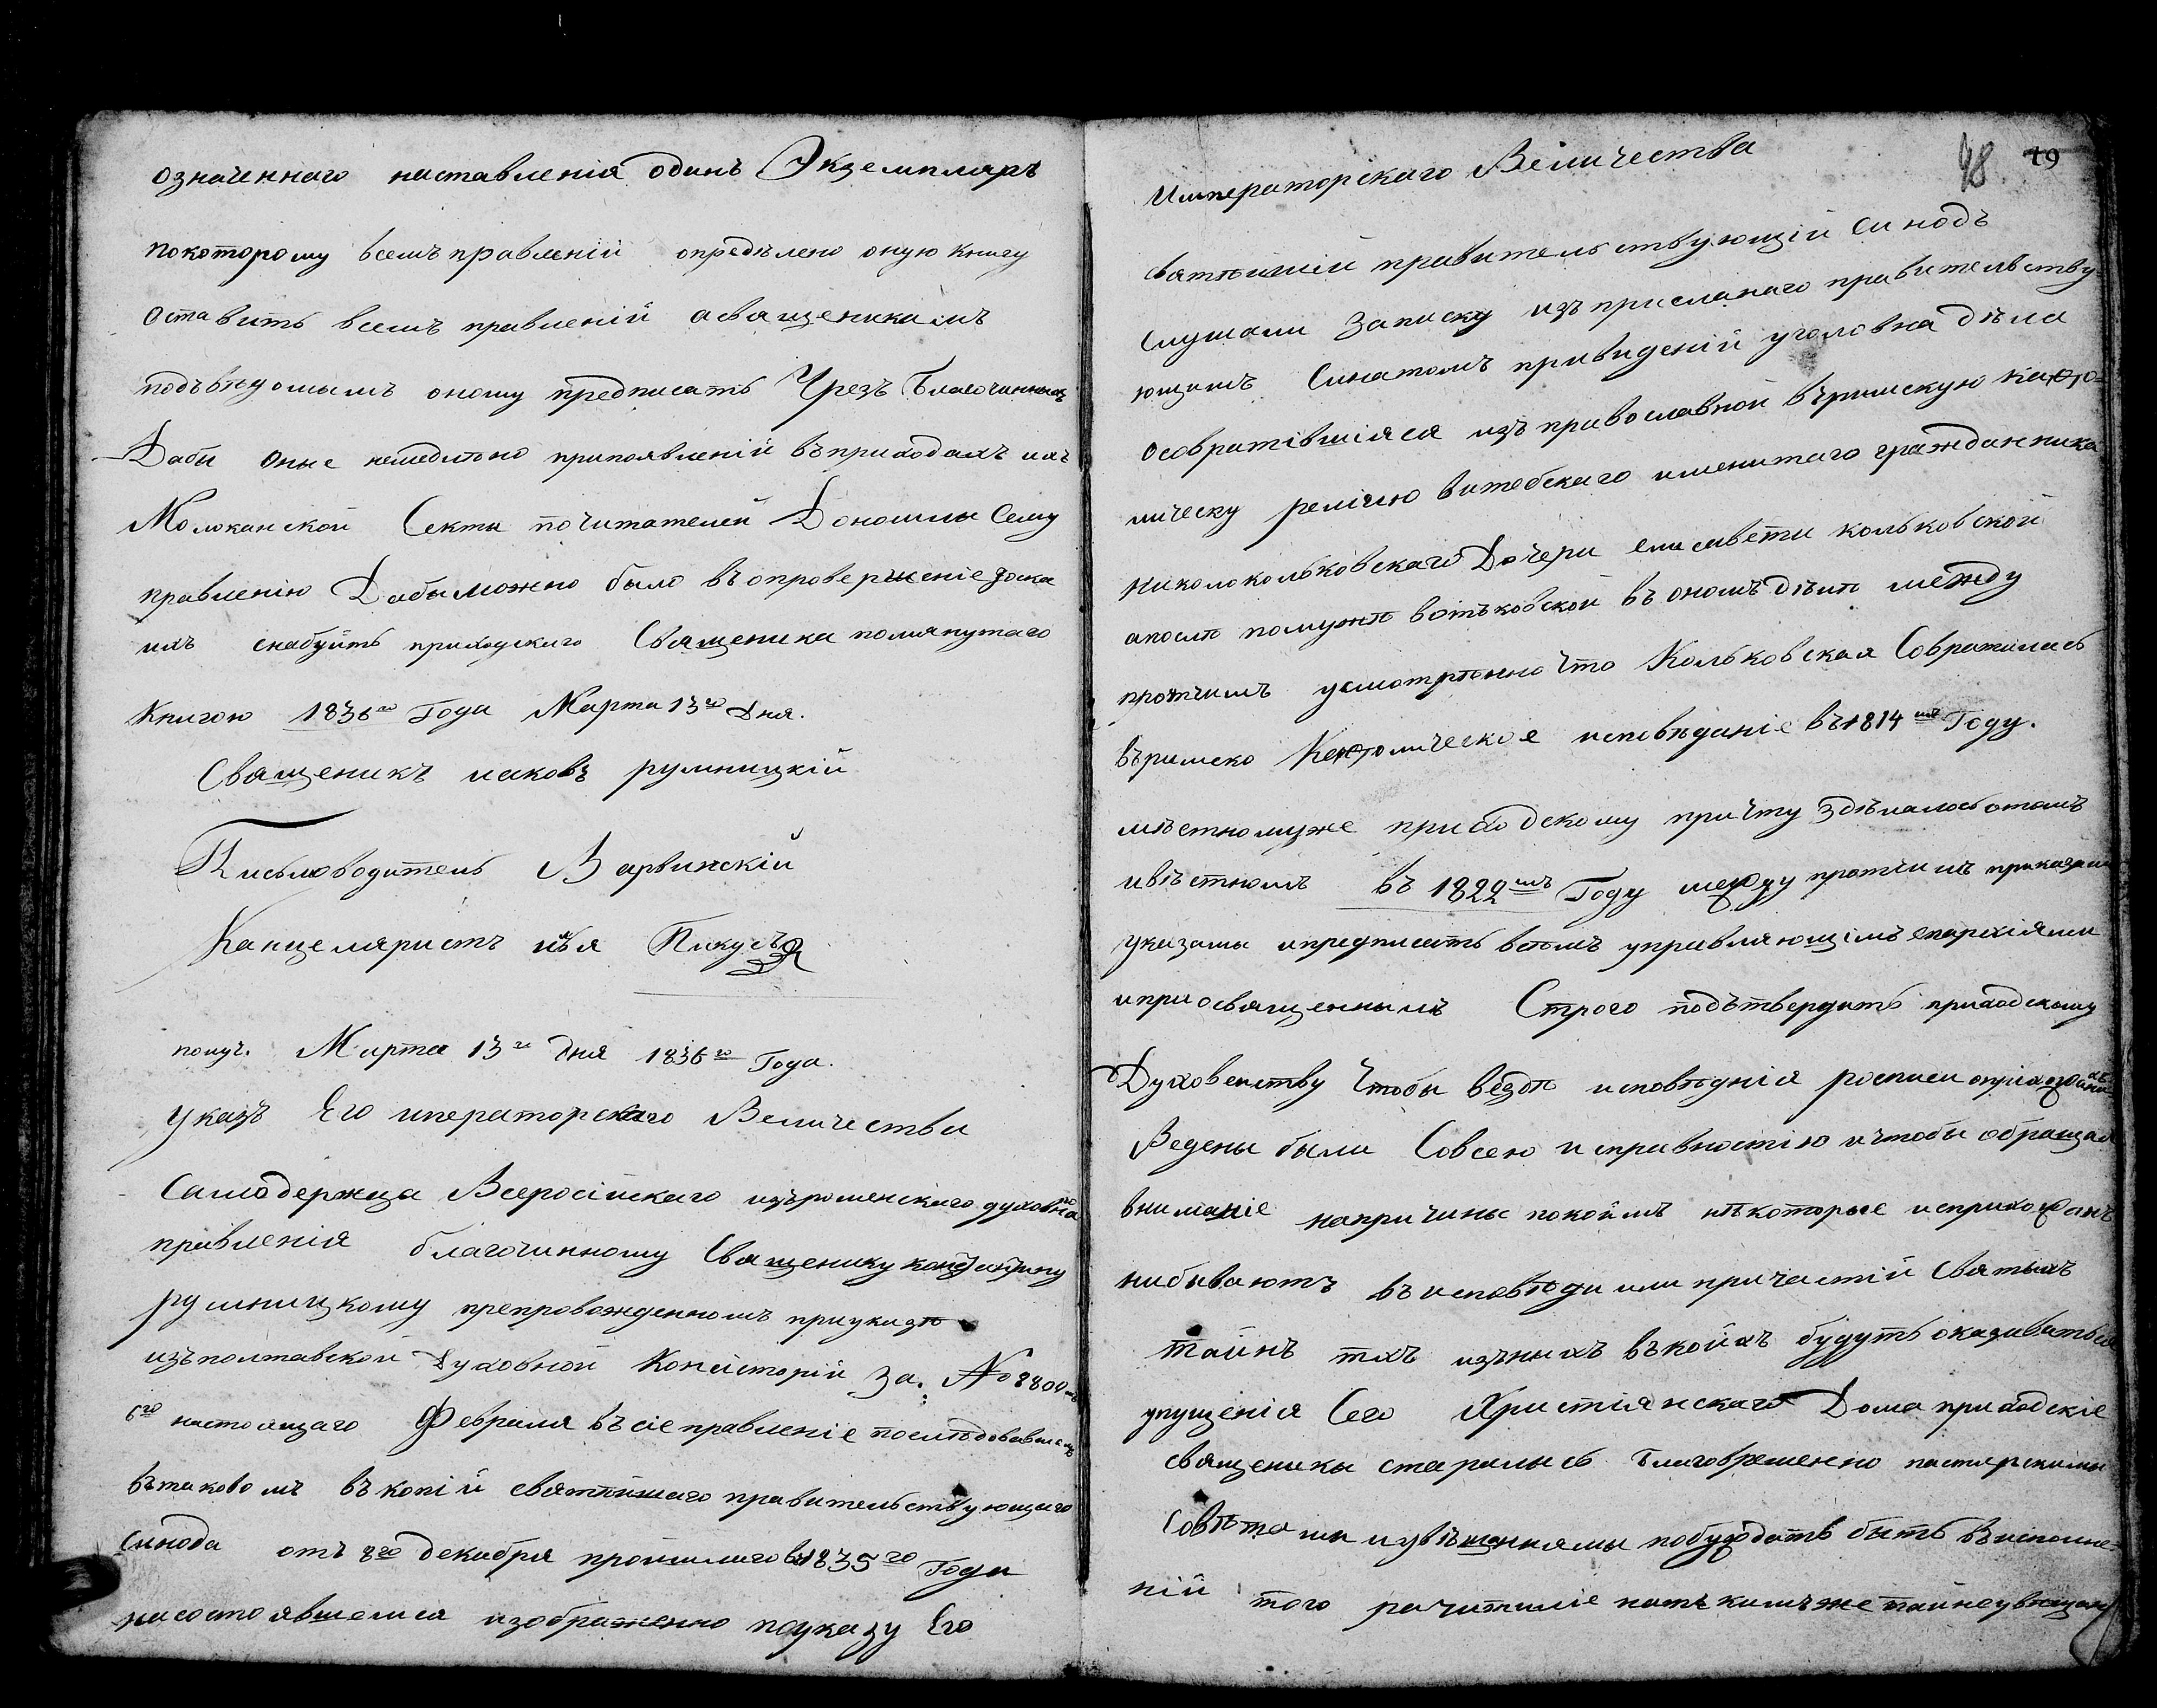 означеннаго наставленія одинъ Экземпляръ
покоторому всемъ правленіи опредѣлено оную книгу
Оставить всемъ правленіи асвященикамъ
подъвѣдомымъ оному предписать Чрезъ Благочинныхъ
Дабы оные немедлѣно припоявленіи въприходахъ ихъ
Молоканской Секты почитателей Доношлы Сему
правленію Дабы можно было въопроверженіе
ихъ снабдить приходскаго Священика помянутаго
Книгою 1836го Года Марта 13го Дня.
Священикъ иаковъ румницкій
Письмоводитель Варвинскій
Канцеляристъ илья Пикусъ
получ. Марта 13го дня 1836го Года.
Указъ Его иператорскаго Величества
Самодержца Всеросійскаго изъроменскаго духовнаго
правленія благочинному Священику
румницкому препровожденномъ приуказѣ
изъполтавской Духовной Консисторіи За. № 8800мъ
6го настоящаго Февраля въсіе правленіе послѣдовавшемъ
вътаковомъ въкопіи святѣйшаго правительствующаго
Синода отъ 8го декабря прошлаго 1835го Года
насостоявшемся изображенно поуказу Его
Императорскаго Величества
48 19
святѣйшій правительствующій синодъ
Слушали Записку изъ присланаго правительству-
ющимъ Синатомъ привиденіи уголовна дѣла
Осовратівшіяся изъ православной въримскую като-
лическу релігію витебскаго именитаго гражданника
Николокольковскаго Дочери елисавети кольковской
апослѣ помужѣ вотьковской въ ономъ дѣлѣ между
протчимъ усмотрѣнно Что Кольковская Совратилась
въримско Католическое исповѣданіе въ 1814мъ Году.
мѣстномуже приходскому причту здѣлалось отомъ
ивѣстномъ въ 1822мъ Году между протчимъ приказали
указамы ипредписать всемъ управляющимъ епархіями
ипреосвященнымъ Строго подътвердить приходскому
Духовенству Чтобы вездѣ исповѣднія росписи оприхожанахъ
Ведены были Совсею исправностію ичтобы обращая
вниманіе напричины покоимъ нѣкоторые исприхожанъ
нибываютъ въисповѣди или причастіи Святыхъ
тайнъ тѣхъ изъныхъ въкоихъ будутъ оказиваться
упущенія Сего Христіянскаго Долга приходскіе
священики старались благовременно пастирскими
Совѣтами иувѣщаніями побуждать быть въисполне-
ніи того рачитиліе